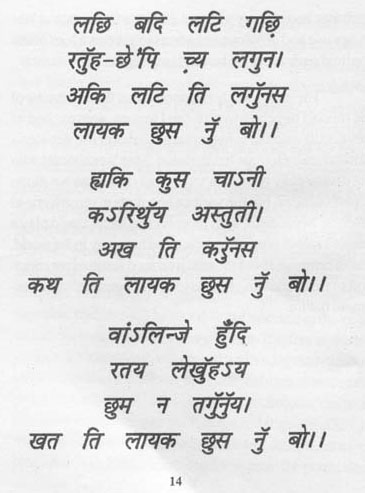 लछि बदि लटि गछि़
रतुॅह-छे'पि च़्य लगुन।
अकि लटि ति लगुॅनस
लायक छुस नुॅ बो।।
ह्यकि कुस चाऽनी
कऽरिथुॅय अस्तुती।
अख ति करुॅनस
कथ ति लायक छुस नुॅ बो।।
वांऽलिन्जे हुॅंदि
रतय लेखुॅहऽय
छुम न तगुॅनुॅय।
खत ति लायक छुस नुॅ बो।।
14